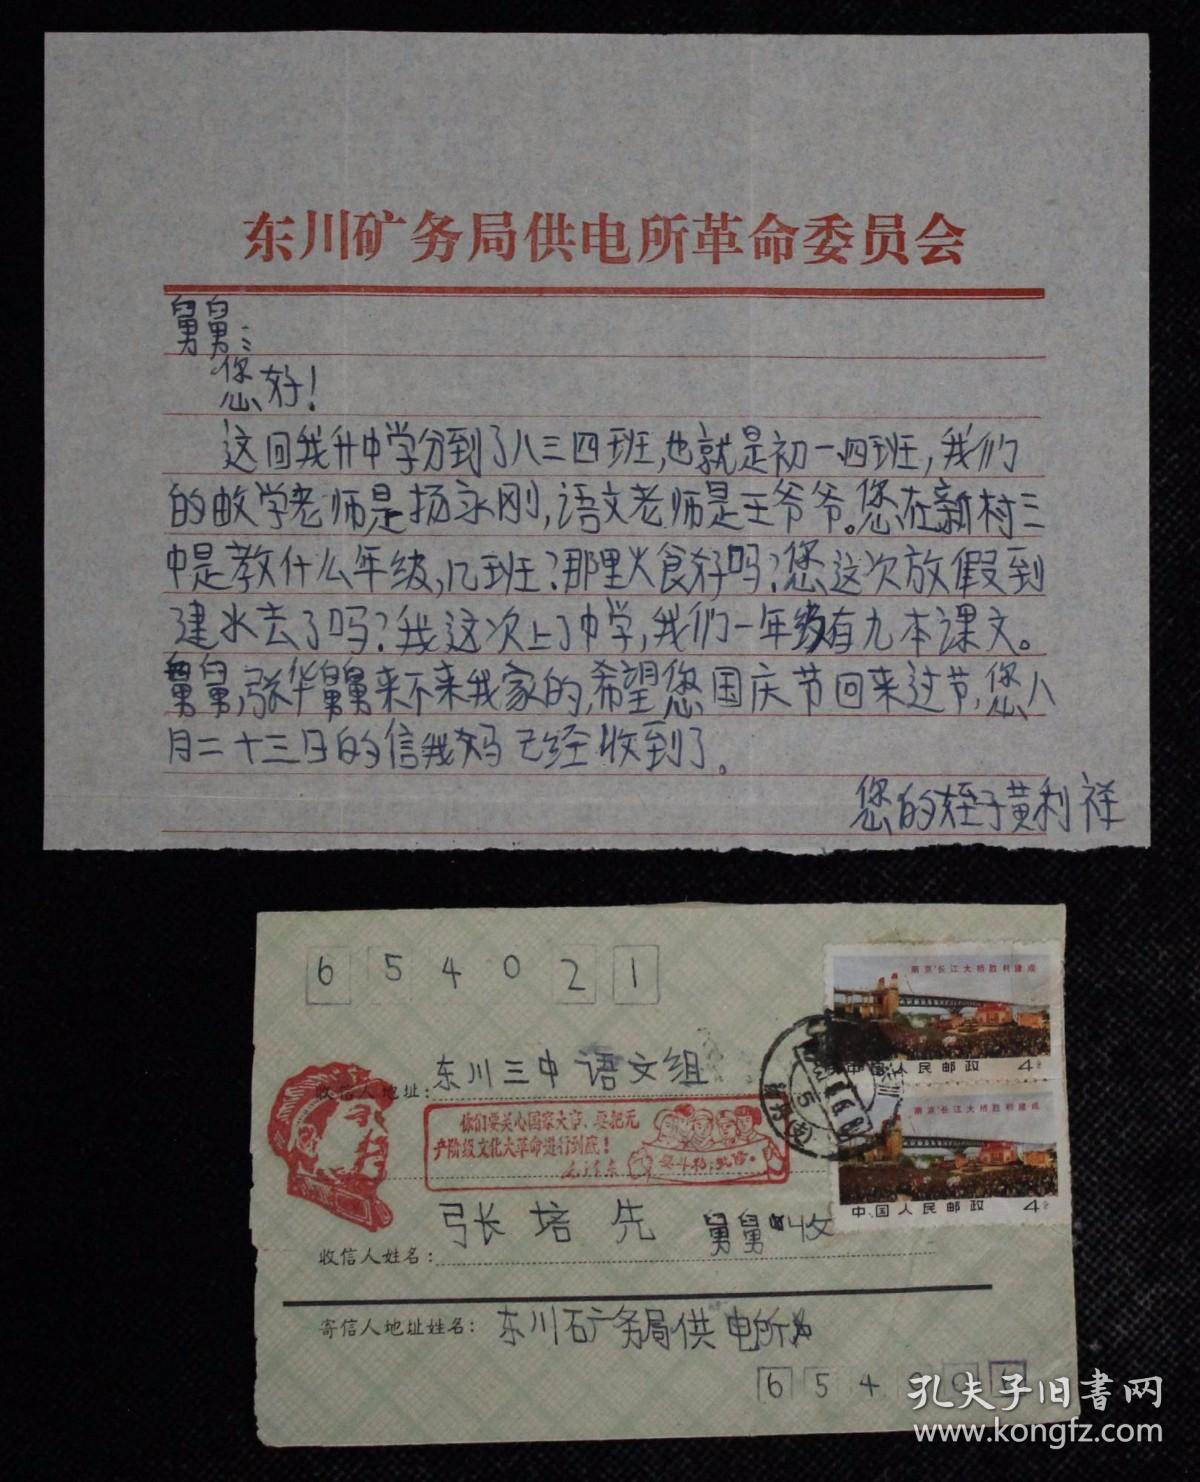 东川矿务局供电所革命委员会
舅舅:
您好!
这回我升中学分到了八三四班,也就是初一四班,我们
的数学老师是扬永刚,语文老师是王爷爷。您在新村三
中是教什么年级,几班?那里火食好吗?您这次放假到
建水去了吗?我这次上了中学,我们一年级有九本课文。
舅舅,张华舅舅来不来我家的,希望您国庆节回来过节,您八
月二十三日的信我妈已经收到了。
您的姪子黄利祥
654021
南京长江大桥胜利建成
中国人民邮政 4分
南京长江大桥胜利建成
中国人民邮政 4分
收信人地址:东川三中语文组
你们要关心国家大事,要把无
产阶级文化大革命进行到底!
毛泽东
要斗私批修。
收信人姓名:张培先 舅舅收
寄信人地址姓名:东川矿务局供电所
654
孔夫子旧书网
www.kongfz.com